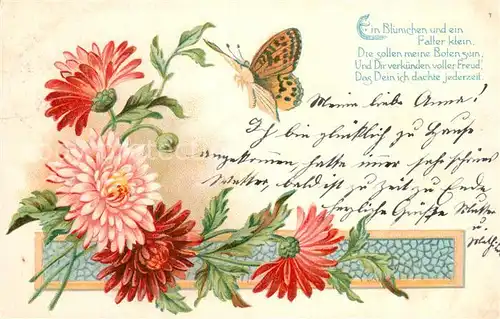 Ein Blümchen und ein
Falter klein,
Die sollen meine Boten sein,
Und Dir verkünden voller Freud'
Das Dein ich dachte jederzeit.
Meine liebe Anna!
Ich bin glücklich zu Hause
angekommen hatte immer sehr schönes
Wetter bald ist zu Zeit zu Ende
herzliche Grüße Mutter
u.